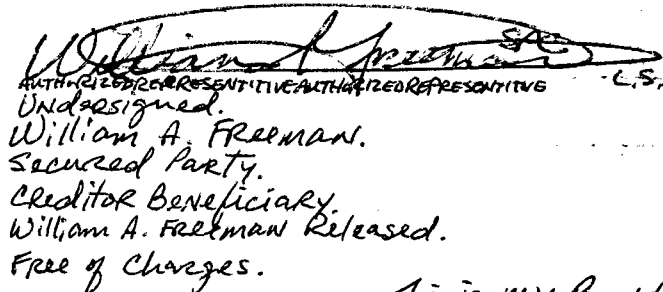 William A Freeman
AUTHORIZED REPRESENTITIVE AUTHORIZED REPRESENTITIVE L.S.
Undersigned.
William A. FREEMAN.
Secured Party.
Creditor Beneficiary.
William A. FREEMAN Released.
Free of Charges.